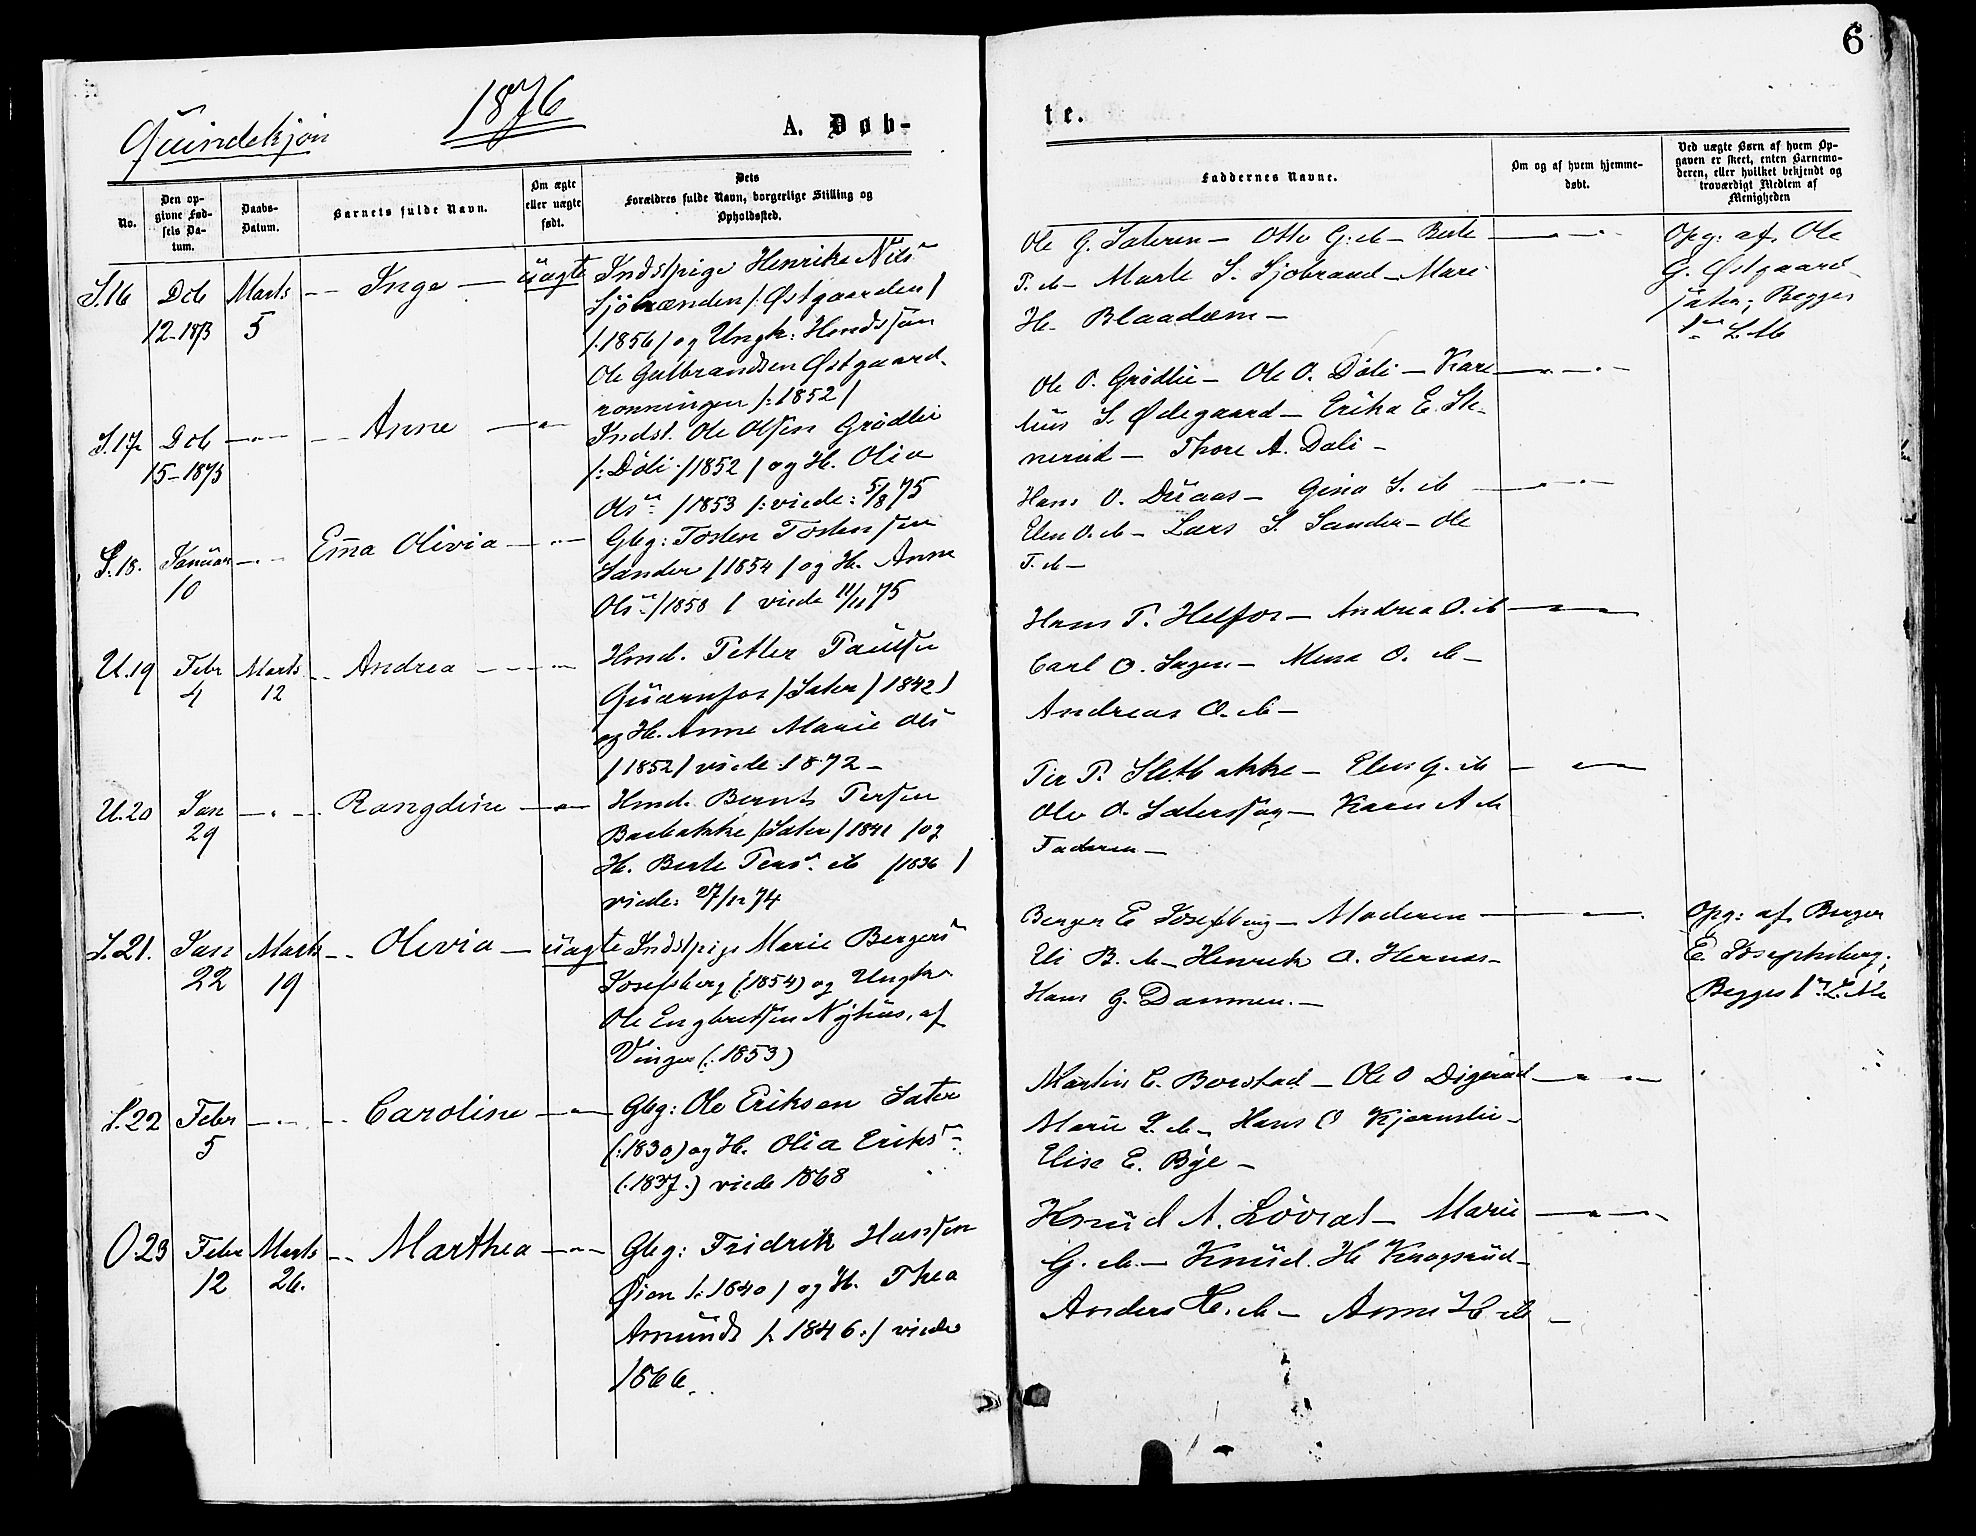 6
1876
Quindekjön
A. Døb-
te.
No.
Den op-
givne Fød-
sels Da-
tum.
Daabs-
Datum.
Barnets fulde Navn.
Om ægte
eller uægte
født.
Dets
Forældres fulde Navn, borgerlige Stilling og
Opholdssted.
Faddernes Navne.
Om og af hvem hjemme-
døbt.
Ved uægte Børn af hvem Op-
gaven er skeet, enten Barnemo-
deren, eller hvilket bekjendt og
troværdigt Medlem af
Menigheden
S.16 Dcb Marts — Inga — üægte Indstpige Henrikе Nils
12-1873 5 Sjöbrænden /: Østgaarden /
/:1856/ og Ungk:
Ole Gulbrandsen Østgaard-
ronningen /:1852/
Ole G. Sateren — Otto G: — Berte
T. — Marte S. Sjobrand — Mari
H. Blaadæm —
Opg: af Ole
G. Østgaard-
; Begges
S.17 Dcb — Anne —
15-1875
Indst. Ole Olsen Grødlie
/: Döli /1852 / og H. Olia
Ols /1853 /: viede: 5/8 75
Ole O. Grødlie — Ole O. Döli — Kare
S. Ødegaard — Erika E. Ste-
nerud — Thore A. Dali —
S.18. Januar — Ema Olivia —
10
Gbg: Tosten Tostensen
Sander /1854 / og H. Anne
Ols /1850 / viede 11/11 75
Hans O. Duaas — Gina S.
Elen O. — Lars S. Sander — Ole
T.
U.19 Febr Marts — Andrea —
4 12
Hmd. Petter Paulsen
Quarnfos / Sater / 1842 /
og H. Anne Marie Ols
/ 1852 / viede 1872 —
Hans P. Helfos — Andrea O.
Carl O. Sagen — Mena O.
Andreas O.
U.20 Jan — Rangdine —
29
Hmd. Bernt Persen
Barbakke / Sater / 1841 / og
H. Berte Pers / 1836 /
viede: 27/12 74
Per P. Sletbakke — Elen G.
Ole O. Saterssag — Karen A
Faderen —
S.21. Jan Marts — Olivia — üægte
22 19
Indstpige Marie Bergers
Josefsberg (:1854) og Ungk
Ole Engbretsen Nyhüs, af
Vinger (:1853)
Berger E Josefberg — Moderen
Eli B. — Henrik O. Hernes —
Hans G. Dammen. —
Opg: af Berger
E. Josephsberg;
Begges 1
S.22 Febr — Caroline —
5
Gbg: Ole Eriksen Sater
(:1830) og H. Olia Eriks
(:1837.) viede 1868
Martin C. Borstad — Ole O Digerüd
Marie — Hans O Kjernslie —
Elise E. Bye —
O.23 Febr Marts — Marthea —
12 26.
Gbg: Fridrik Hansen
Øien /:1840 / og H. Thea
Amunds /: 1846:/ viede
1866.
Knüd A. Lövsat — Marie
G. — Knüd. H Kragsrüd —
Anders H. — Anne H